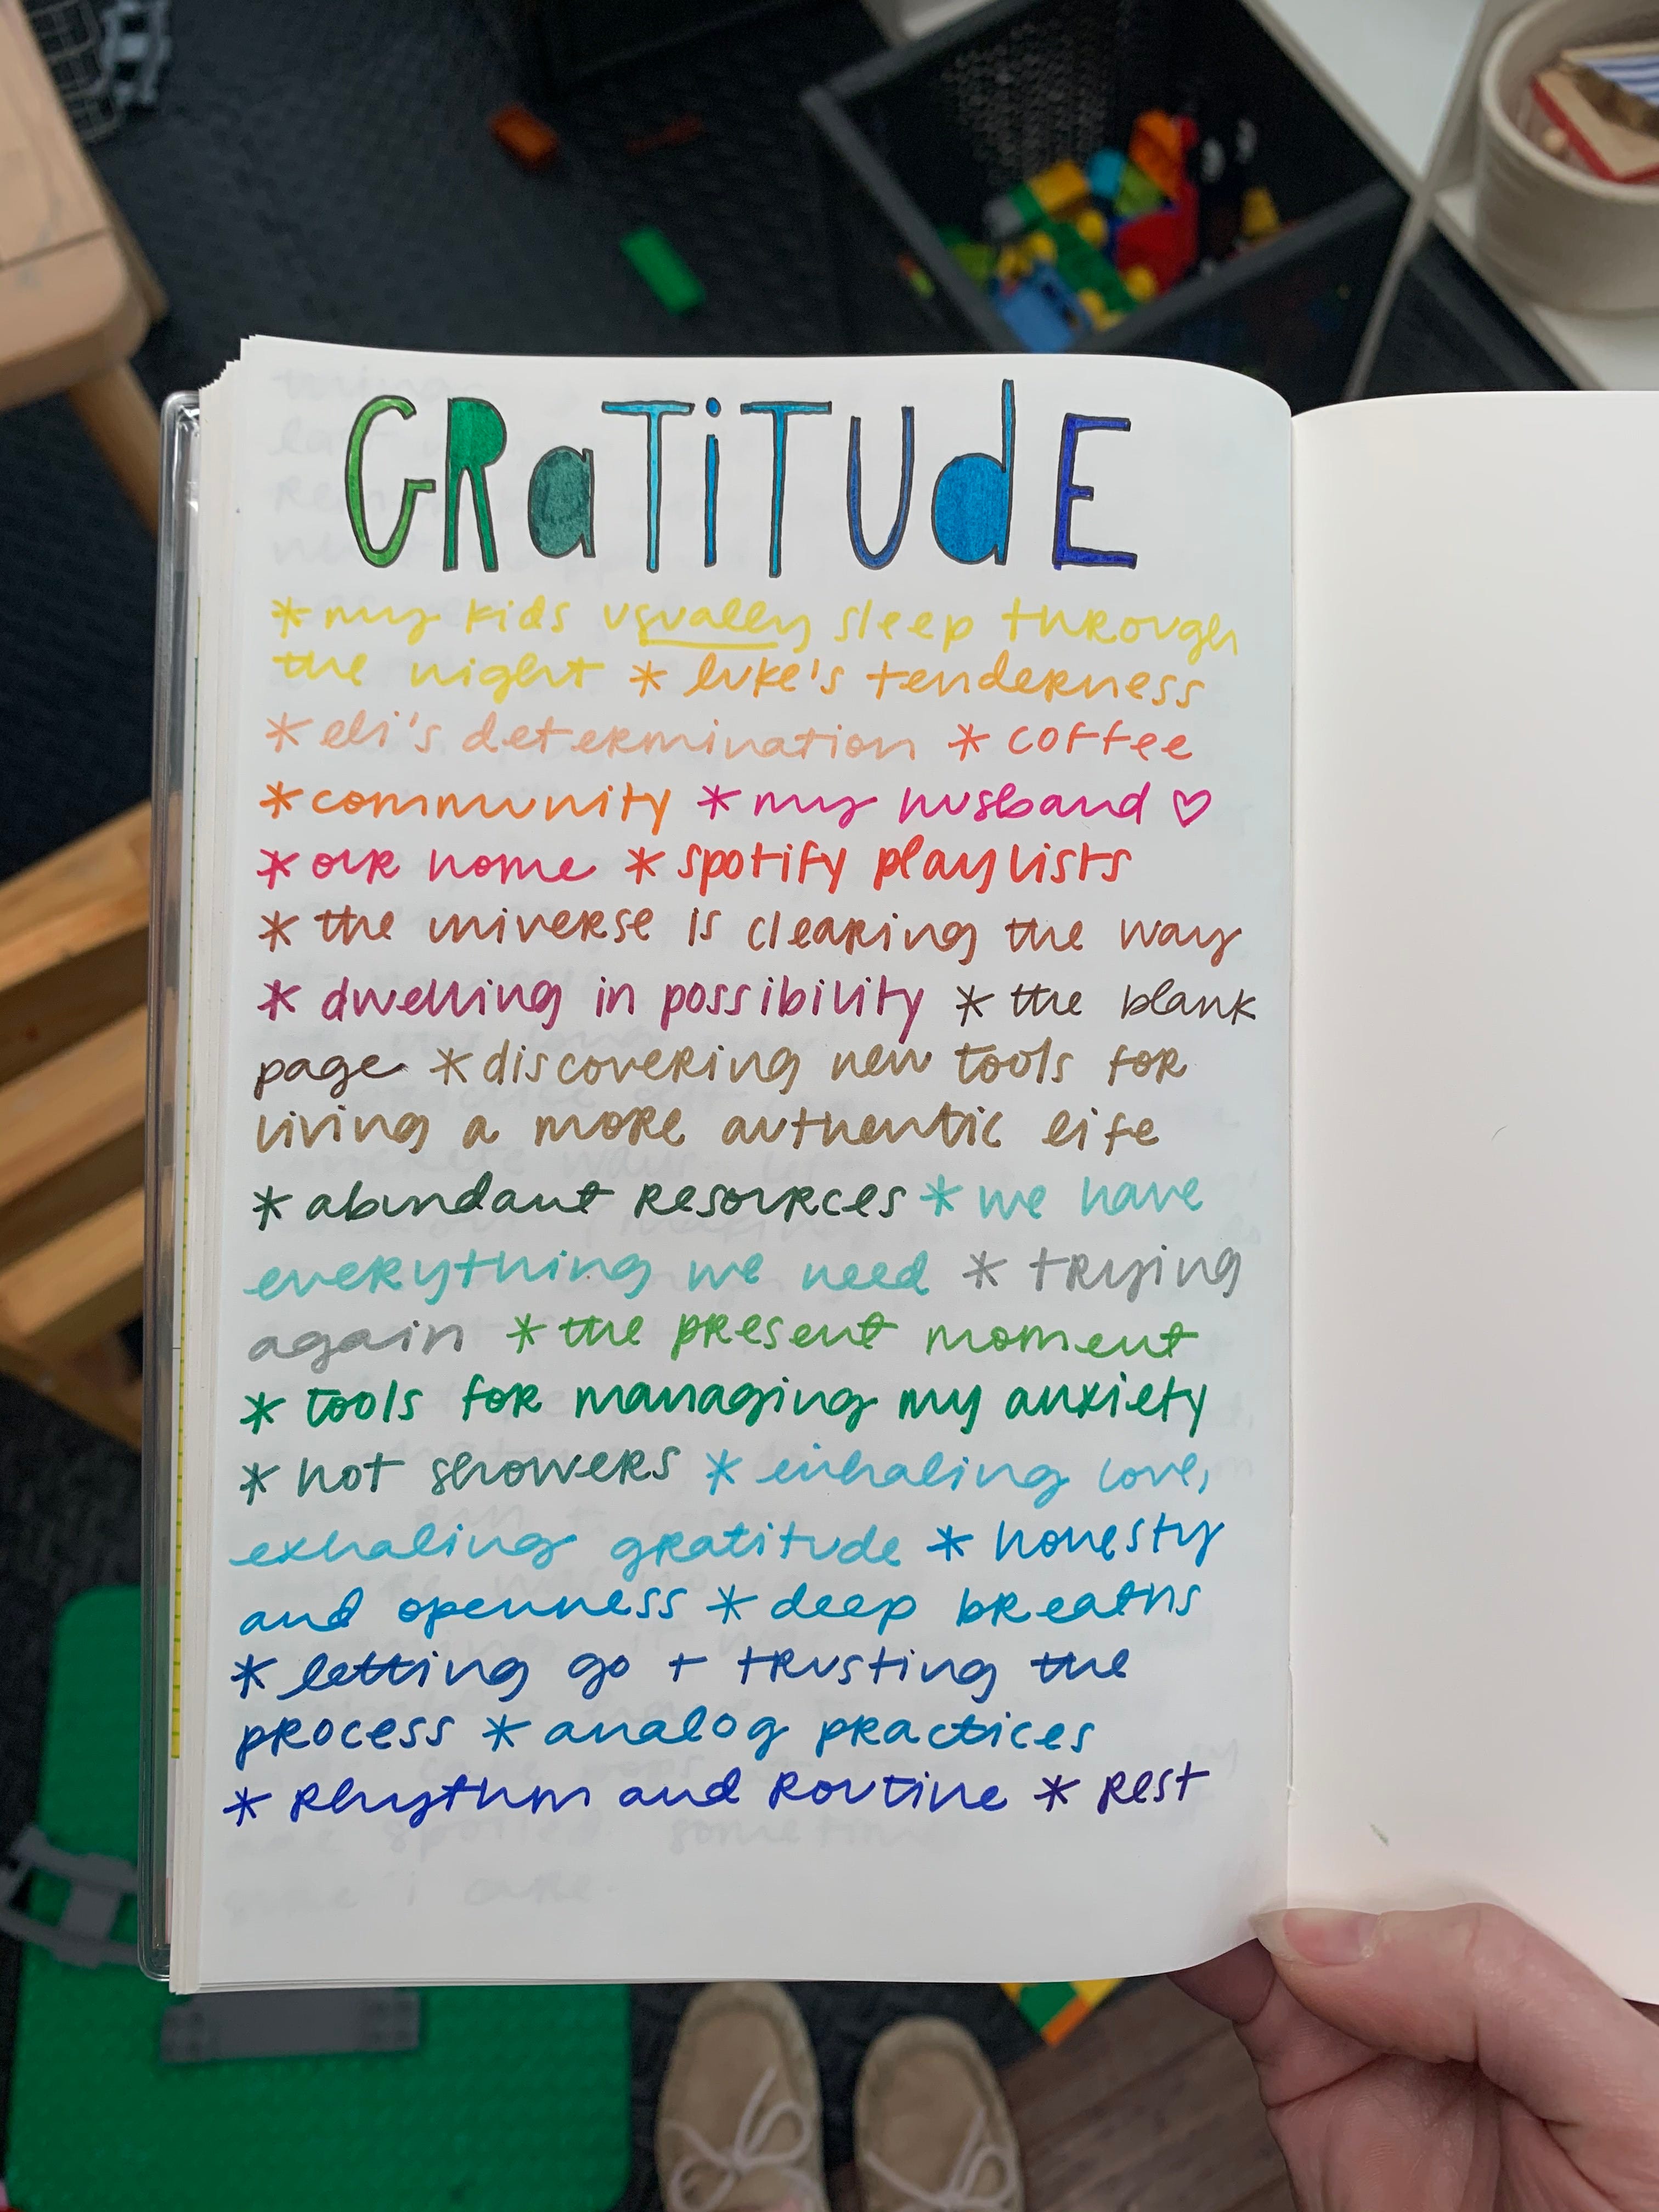 GRaTiTUdE
*my kids usually sleep through
the night * luke's tenderness
*eli's determination * coffee
*community *my husband ♡
*our home *spotify playlists
* the universe is clearing the way
* dwelling in possibility * the blank
page *discovering new tools for
living a more authentic life
*abundant resources * we have
everything we need * trying
again *the present moment
* tools for managing my anxiety
* hot showers * inhaling love,
exhaling gratitude * honesty
and openness * deep breaths
* letting go + trusting the
process * analog practices
* rhythm and routine * rest